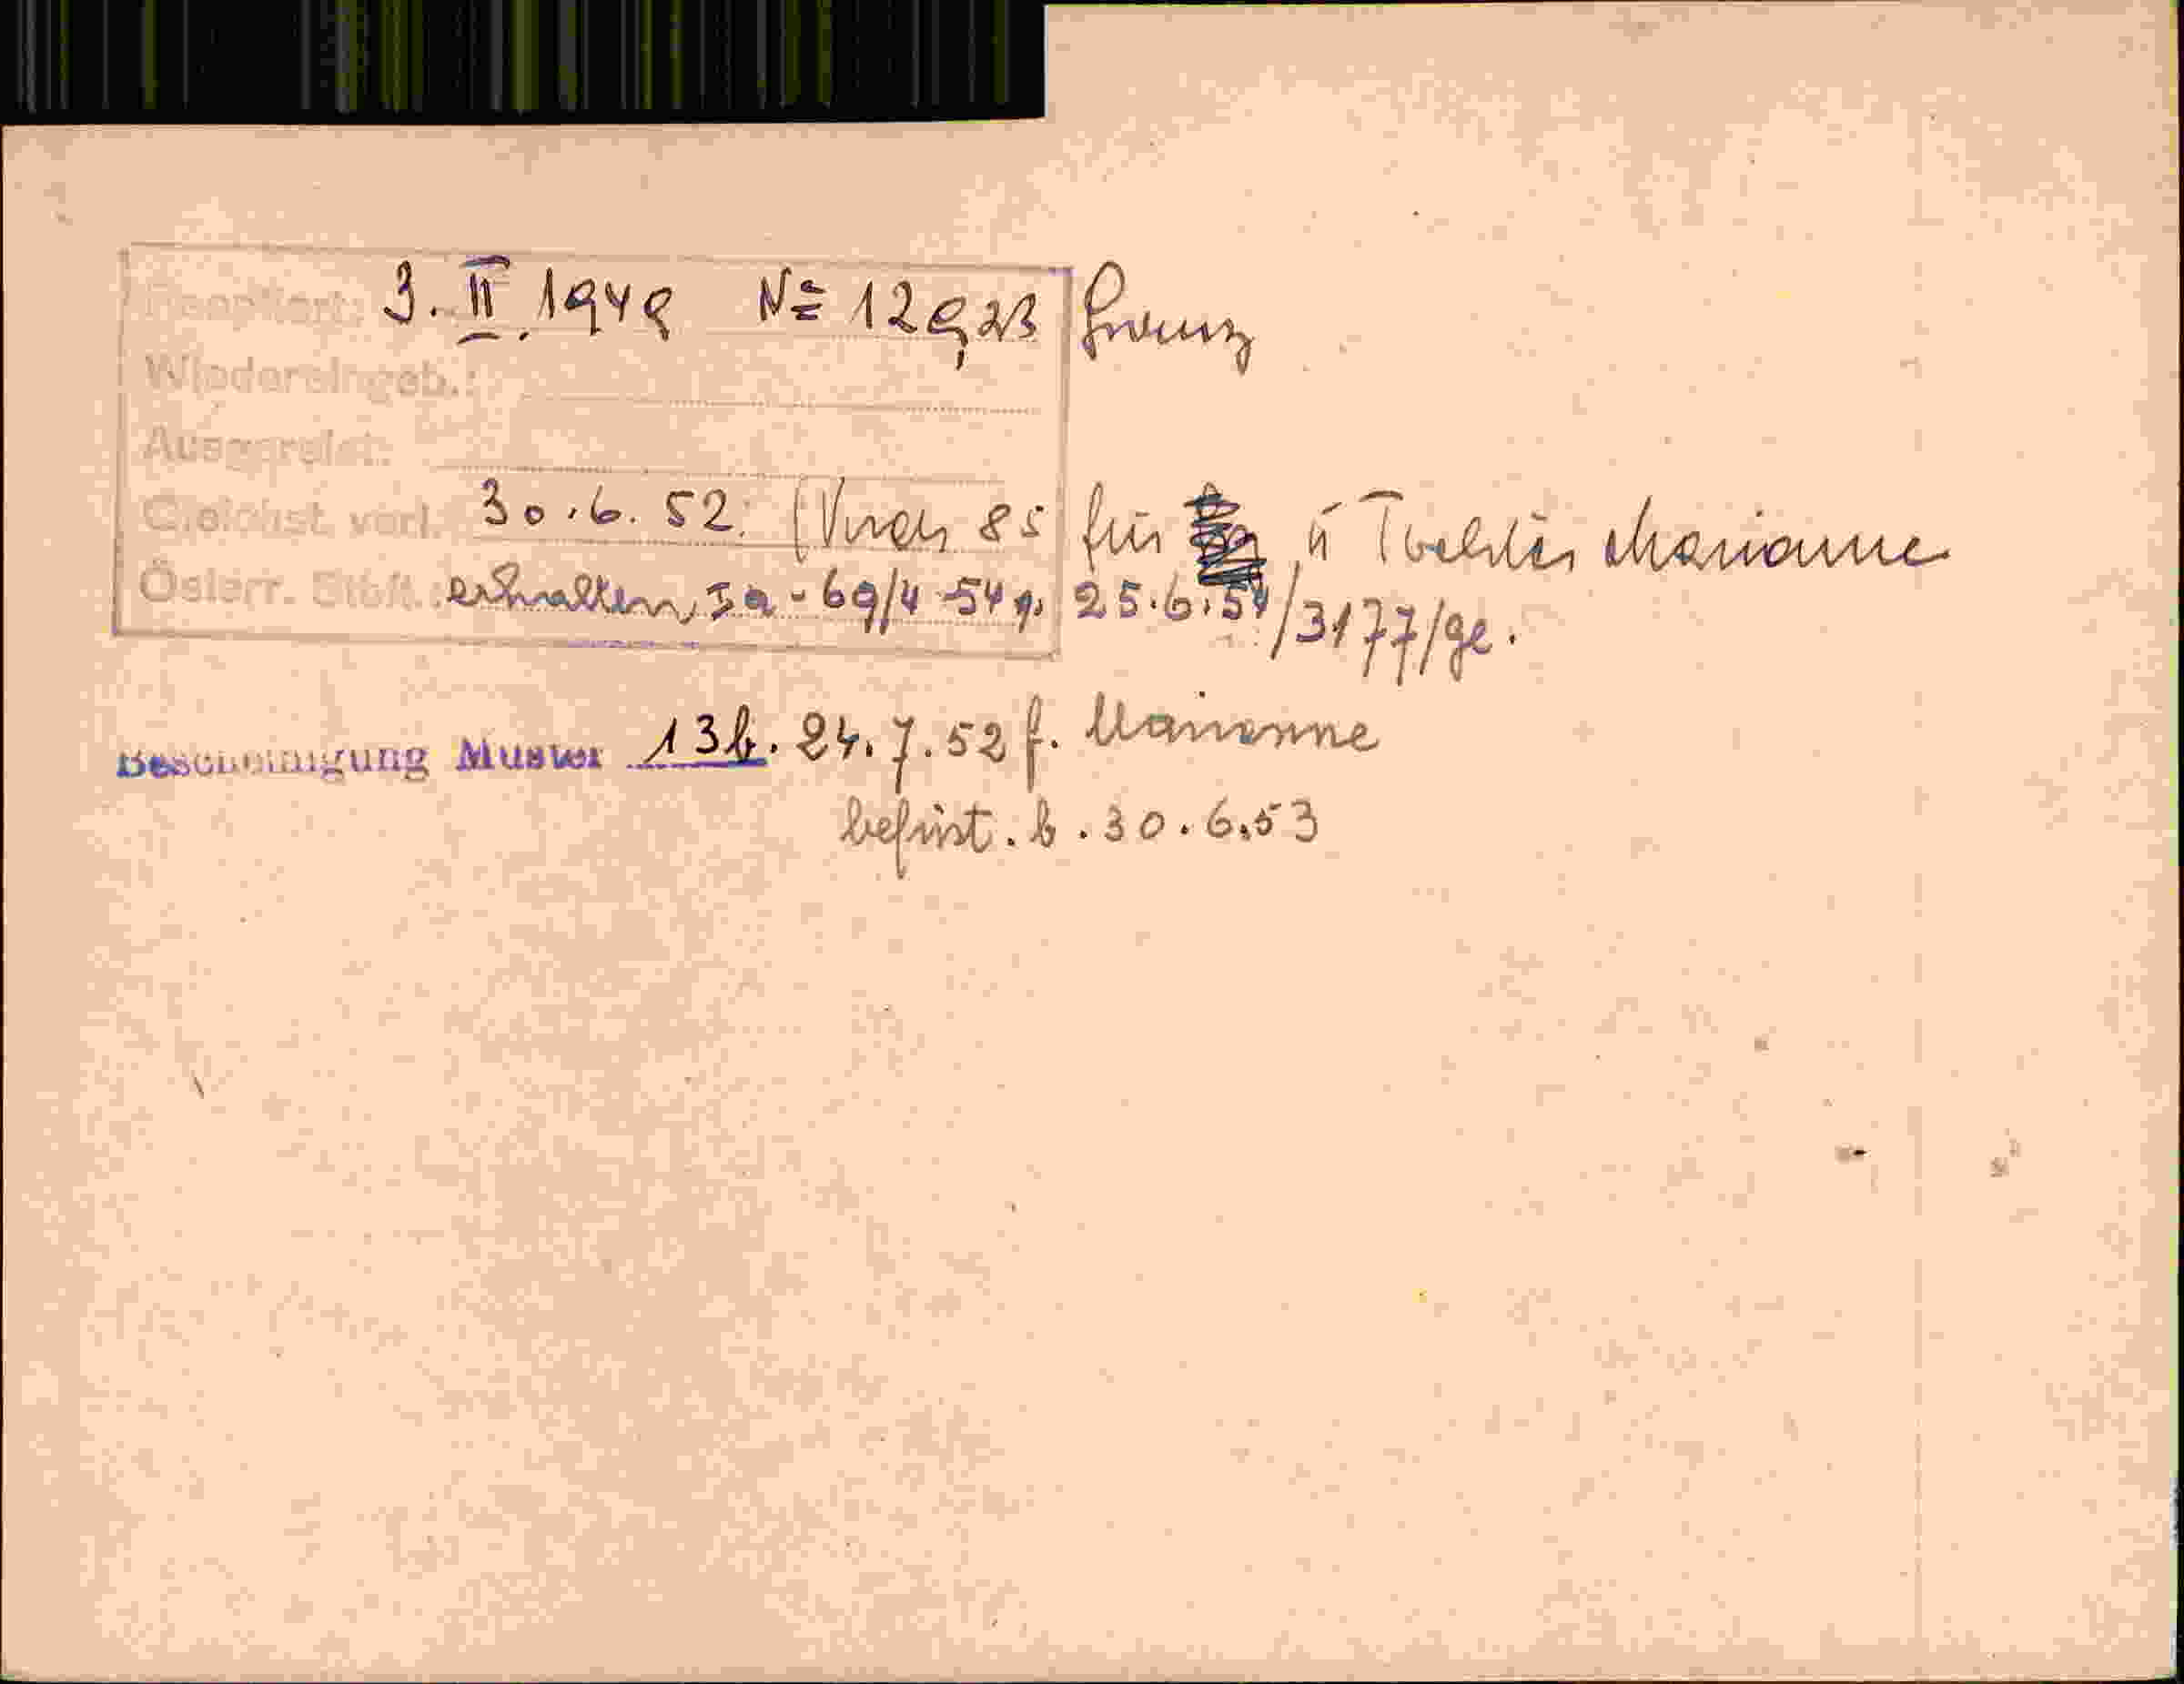 Reoptiert: 3. II. 1949 № 12923 Franz
Wiedereingeb.:
Ausgereist:
Gleichst. verl. 30.6.52. 85 für u Tochter Marianne
Österr. erhalten, - 69/4-54 g. 25.6.54/3177/ge.
Bescheinigung Muster 13b. 24.7.52 f. Marianne
befrist. b. 30.6.53